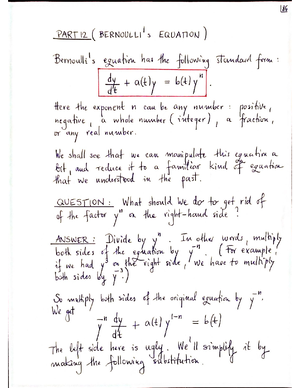 PART 12 ( BERNOULLI's EQUATION )
Bernoulli's equation has the following standard form :
dy/dt + a(t) y = b(t) y^n .
Here the exponent n can be any number : positive,
negative, a whole number ( integer ), a fraction,
or any real number.
We shall see that we can manipulate this equation a
bit, and reduce it to a familiar kind of equation
that we understood in the past.
QUESTION : What should we do to get rid of
of the factor y^n on the right-hand side ?
ANSWER : Divide by y^n . In other words, multiply
both sides of the equation by y^-n . ( For example,
if we had y^3 on the right side, we have to multiply
both sides by y^-3 . )
So multiply both sides of the original equation by y^-n .
We get
y^-n dy/dt + a(t) y^1-n = b(t)
The left side here is ugly. We'll simplify it by
making the following substitution.